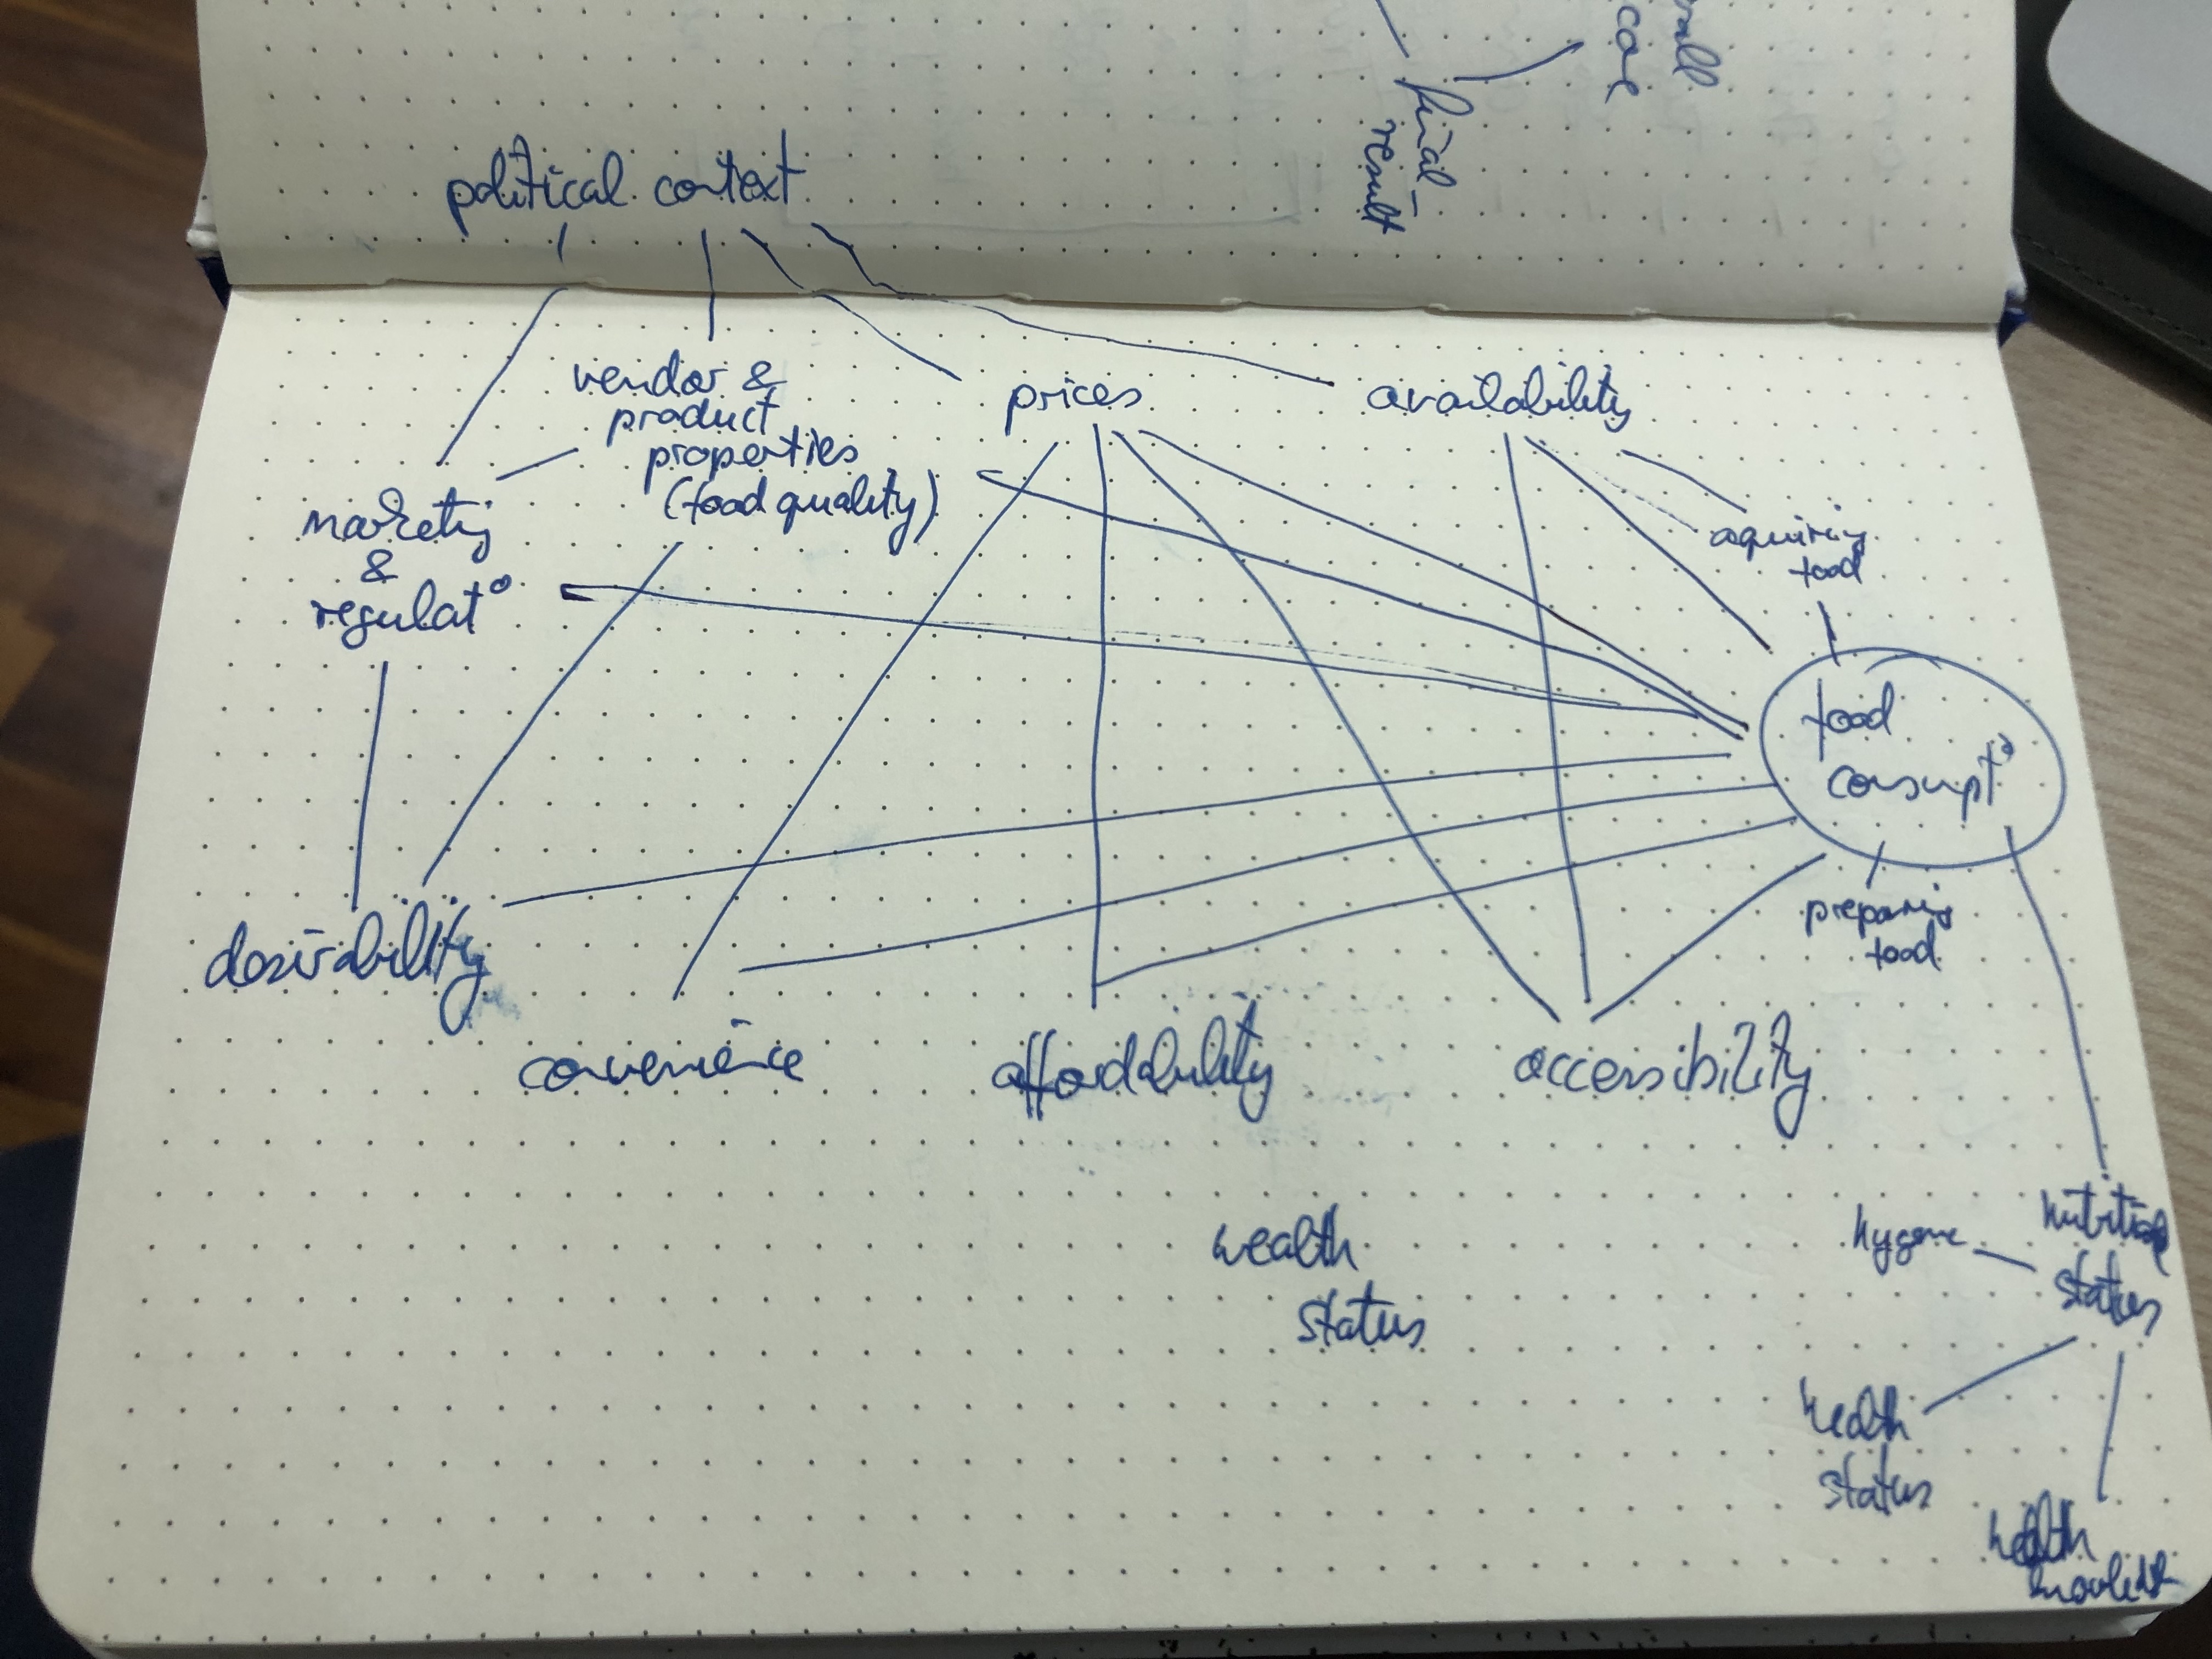 final
result
political context
vendor &
product
properties
(food quality)
prices
availability
marketing
&
regulat°
aquiring
food
food
consumpt°
preparing
food
desirability
convenience
affordability
accessibility
wealth
status
hygene
status
health
status
health